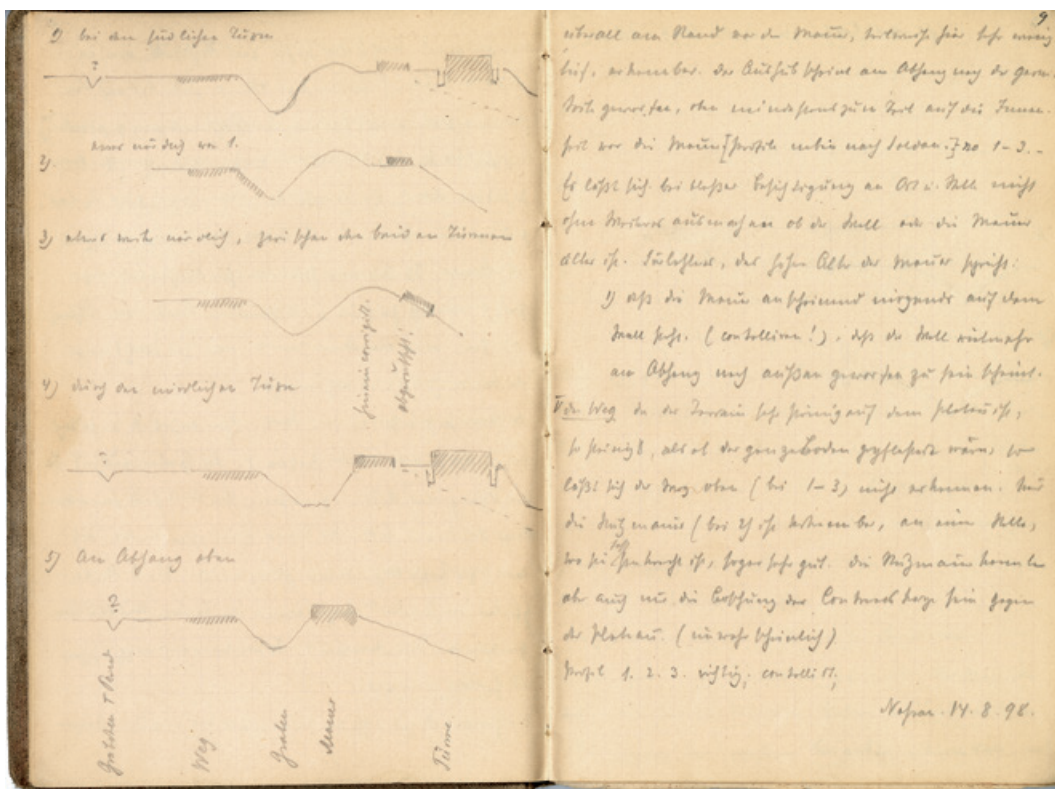 1) bei dem südlichen Turm
?
etwas nördlich von 1.
2)
3) etwas weiter nördlich, zwischen den beiden Türmen
hinuntergerutscht!
4) durch den nördlichen Turm
?
5) Am Abhang oben
?
Gräbchen
Weg
Graben
Mauer
Türme
9
überall am Rand vor der Mauer, teilweise hier sehr wenig
erkennbar. Der Aushub scheint am Abhang nach der
Seite geworfen, oben mindestens zum Teil auf die Innen-
seit vor die Mauer [Profile nach] No 1-3.-
Es läßt sich bei bloßer Besichtigung an Ort u. Stelle nicht
ohne Weiteres ausmachen ob der Wall oder die Mauer
älter ist. das hohe Alter der Mauer spricht:
1) daß die Mauer anscheinend nirgends auf dem
Wall steht. (controlliren!), daß der Wall vielmehr
am Abhang nach außen geworfen zu sein scheint.
der Weg da der Terrain sehr steinig auf dem Plateau ist,
so steinig, als ob der ganze Boden gepflastert wäre, so
läßt sich der Weg oben (bei 1-3) nicht erkennen. Nur
die Stützmauer (bei 2) ist erkennbar, an einer Stelle,
wo sie senkrecht ist, sogar sehr gut. Die Stützmauer könnte
aber auch nur die Böschung der Contreescarpe sein gegen
das Plateau. (unwahrscheinlich)
Profil 1. 2. 3. richtig, controllirt,
14. 8. 98.